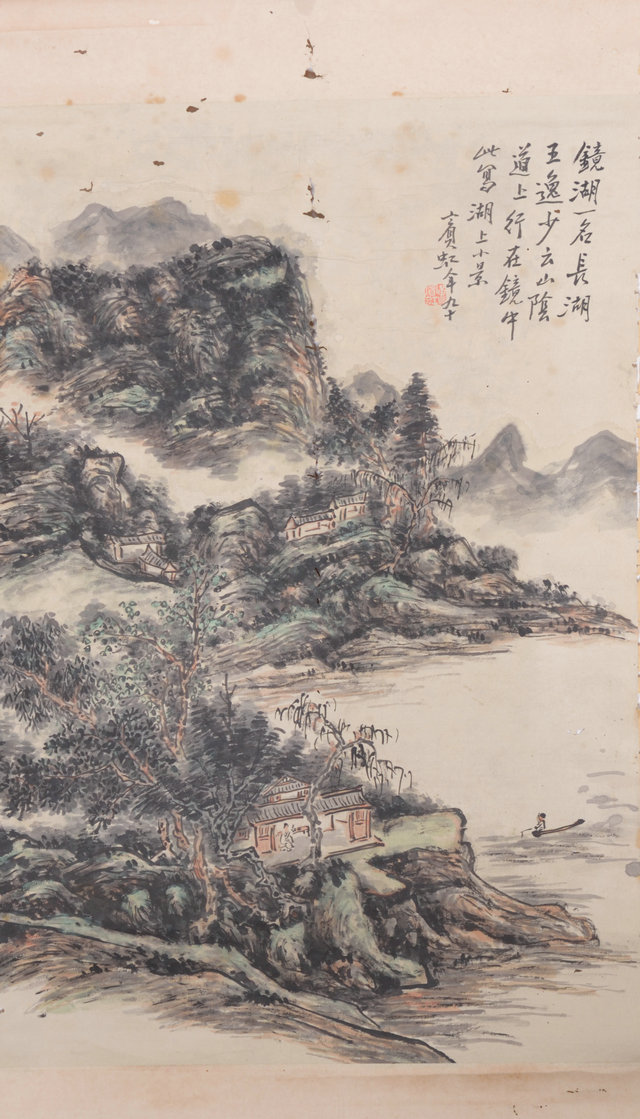 鏡湖一名長湖
王逸少云山陰
道上行在鏡中
此寫湖上小景
賓虹年九十